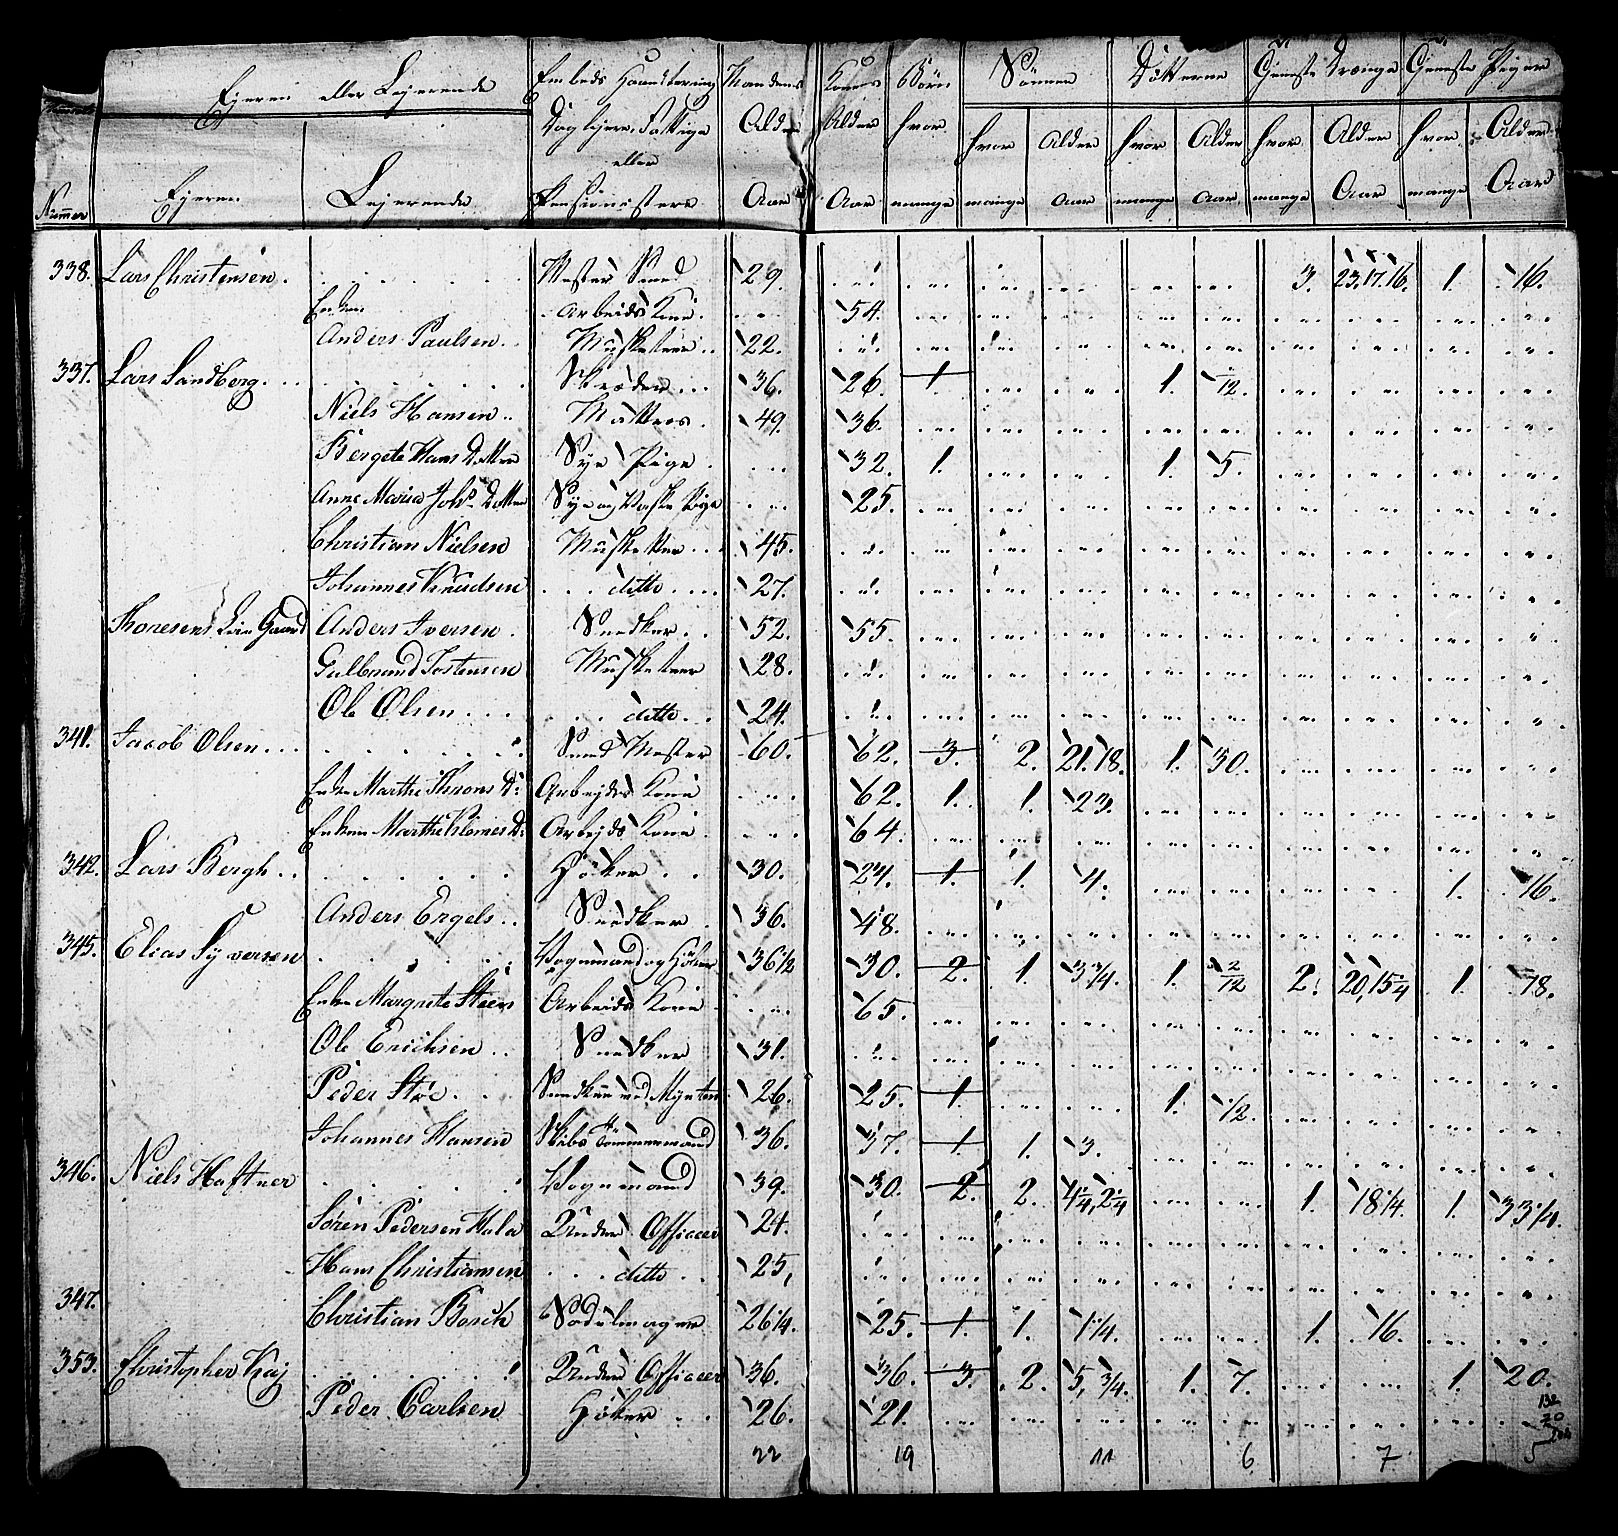 Ejeren eller Lejerende Embeds Haandtering Mandens Konens Börn Sönnen Dötterne Geneste Drænge Geneste Piger
Daglejere, Fattige Alder Alder hvor hvor Alder hvor Alder hvor Alder hvor Alder
eller
Nummer Ejeren Lejerende Pensionisters Aar Aar mange mange Aar mange Aar mange Aar mange Aar
338. Lars Christensen Mester Smed 29. 3. 23, 17. 16. 1. 16.
Enken Arbeids Kone 54.
Anders Paulsen Musketeer 22.
337. Lars Sandberg Skræder 36. 26. 1. 1. /12.
Niels Hansen Matros 49. 36.
Bergete Hans Datter Sye Pige 32. 1. 1. 5.
Anne Maria Johs Datter Sye og Vaske Pige 25.
Christian Nielsen Musketeer 45.
Johannes Knudsen ditto 27.
Thoresens Leie Gaard Anders Iversen Snedker 52. 55.
Gulbrand Tostensen Musketeer 28.
Ole Olsen ditto 24.
341. Jacob Olsen Smed Mester 60. 62. 3. 2. 21. 18. 1. 30.
Enken Marthe Throns D: Arbejds Kone 62. 1. 1. 23.
Enken Marthe Klemes D: Arbejds Kone 64.
342. Lars Bergh Höker 30. 24. 1. 1. 4. 1. 16.
Anders Engels Snedker 36. 48.
345. Elias Syversen Vognmand og Höker 36 1/2 30. 2. 1. 3 3/4. 1. 2/12 2. 20, 15 1/4 1. 18.
Enken Margrete Steers Arbeids Kone 65.
Ole Erichsen Snedker 31.
Peder Stöe Smedkun ved Mynten 26. 25. 1. 1. 1/2.
Johannes Hansen Skibs Tömmermand 36. 37. 1. 1. 3.
346. Niels Haftner Vognmand 39. 30. 2. 2. 4 1/4, 2 1/4 1. 18 1/4. 1. 33 1/4.
Sören Pedersen Hala Under Officeer 24.
Hans Christiansen ditto 25,
347. Christian Bosch Sadelmager 26 1/4. 25. 1. 1. 1 1/4. 1. 16.
353. Christopher Kaj Under Officeer 36. 36. 3. 2. 5, 3/4. 1. 7. 1. 20.
Peder Carlsen Höker 26. 21.
132
70
22 19 11 6 7 5